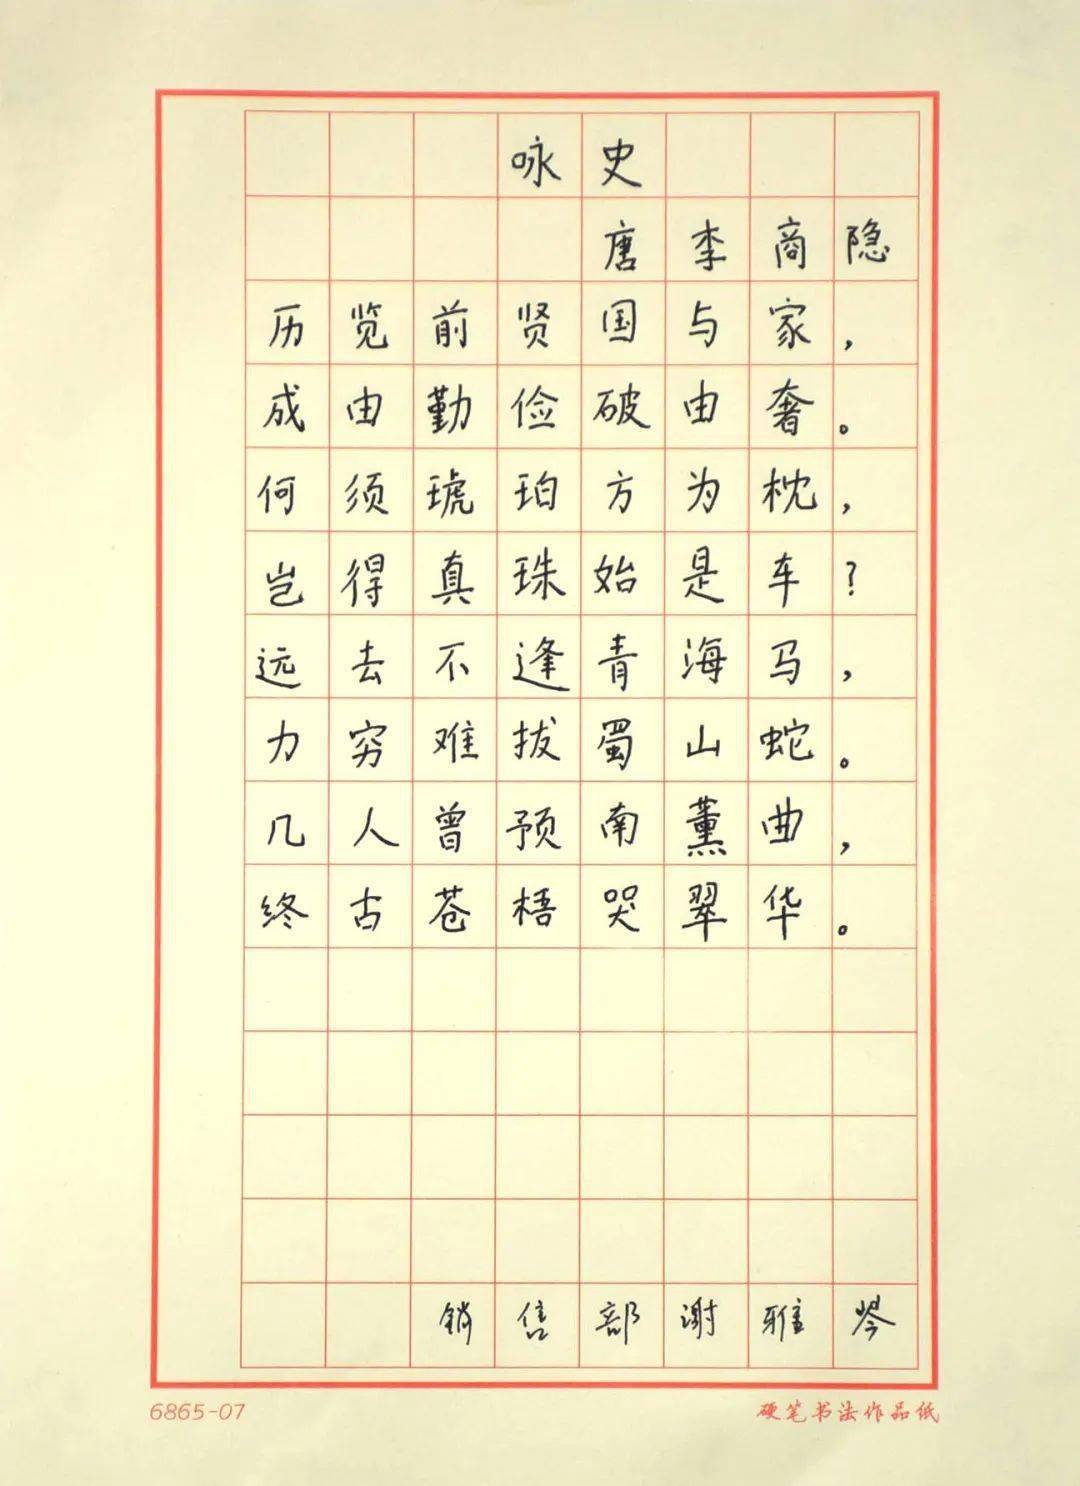 咏史
唐李商隐
历览前贤国与家，
成由勤俭破由奢。
何须琥珀方为枕，
岂得真珠始是车？
远去不逢青海马，
力穷难拔蜀山蛇。
几人曾预南薰曲，
终古苍梧哭翠华。
销售部谢雅琴
6865-07
硬笔书法作品纸